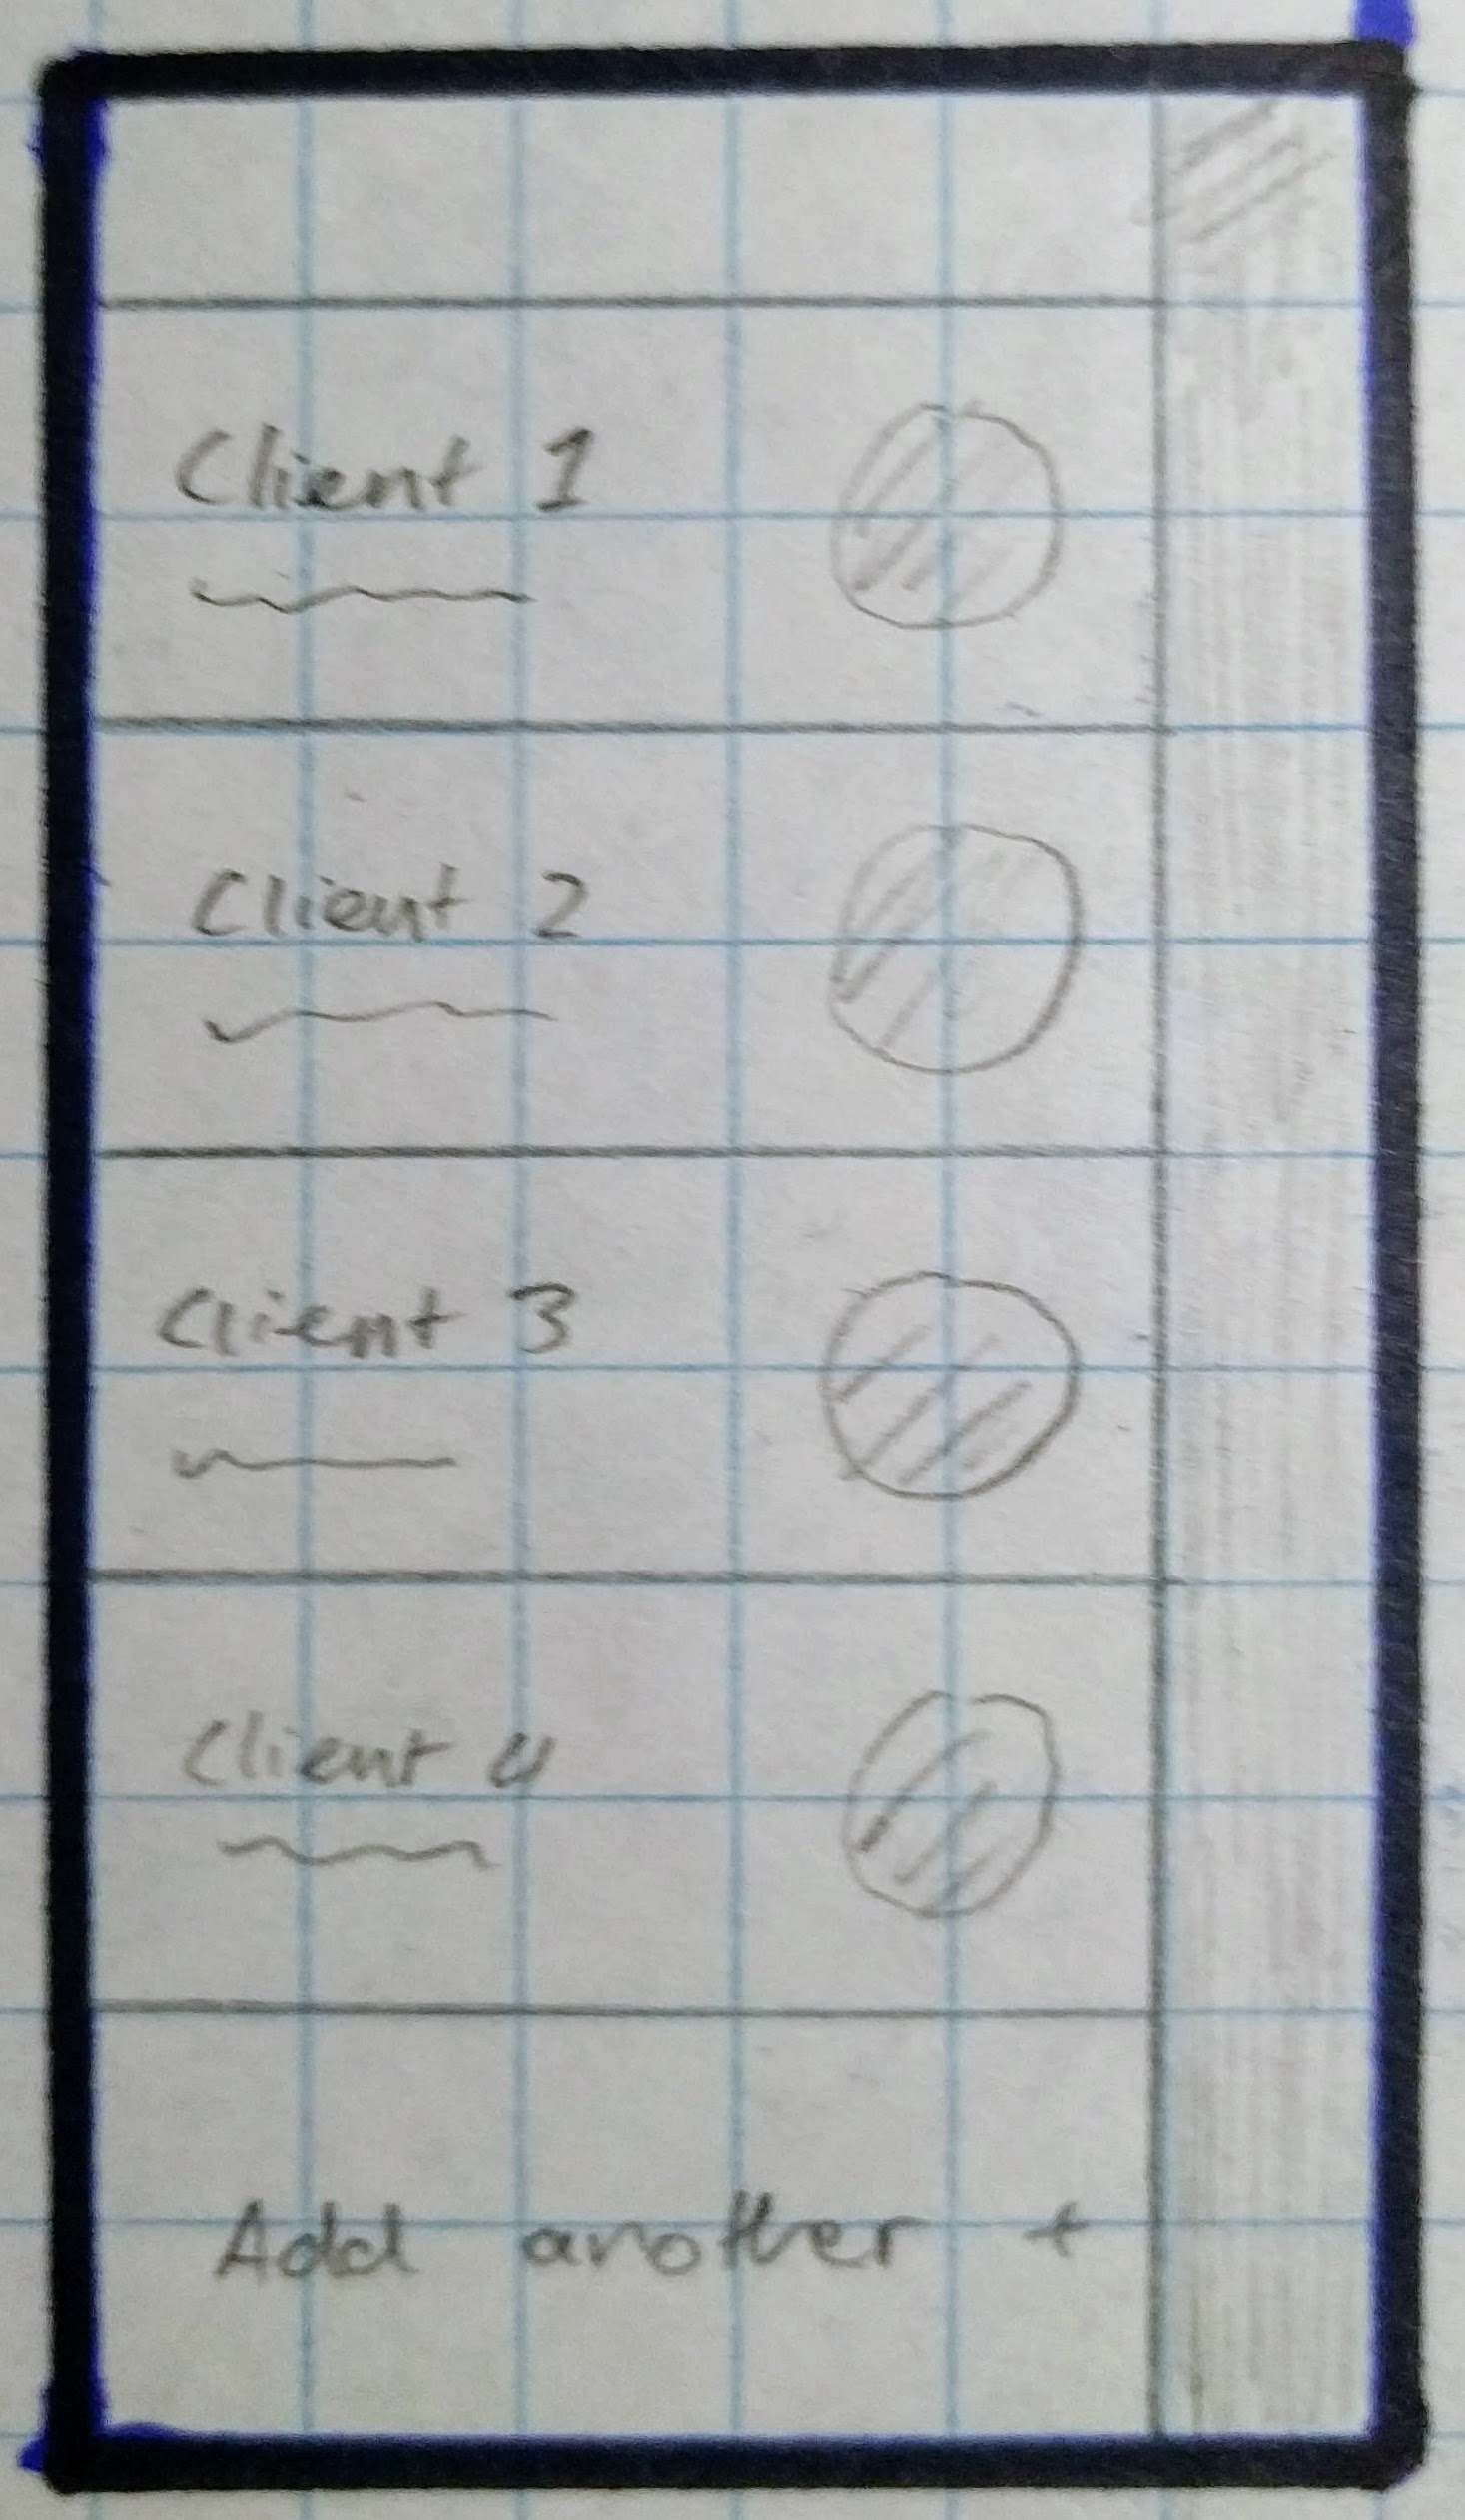 Client 1
Client 2
Client 3
Client 4
Add another +